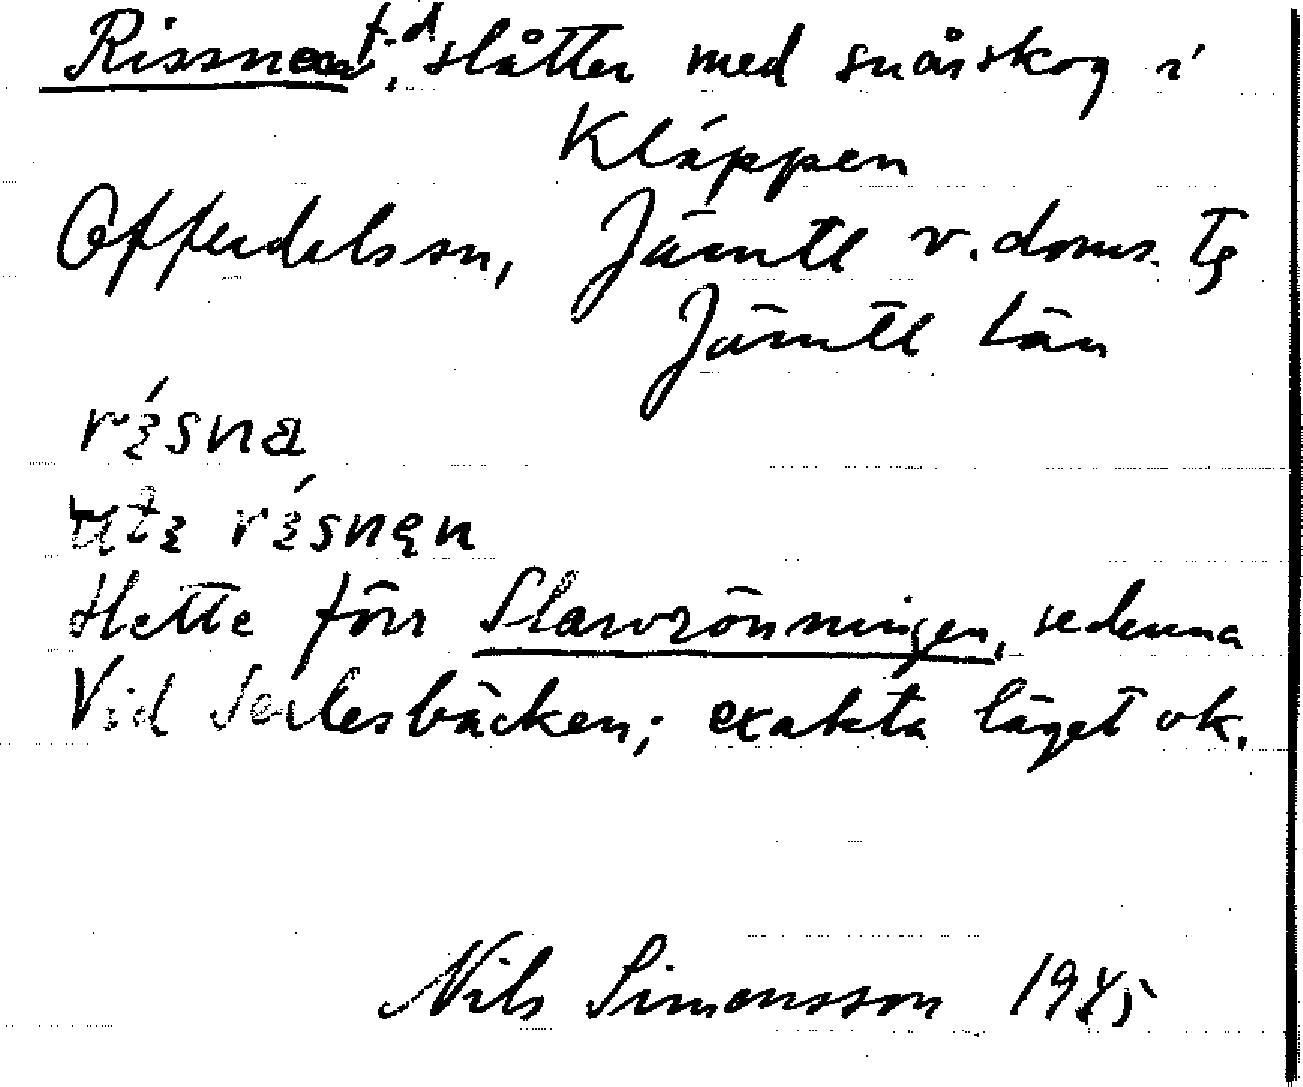 Rissnan, f.d. slåtter med småskog i
Kläppen
Offerdals sn, Jämtl v. doms. tg
Jämtl län
Hette förr Slarvrönningen, sedermera
Vid bäcken; exakta läget ok.
Nils Simonsson 1945